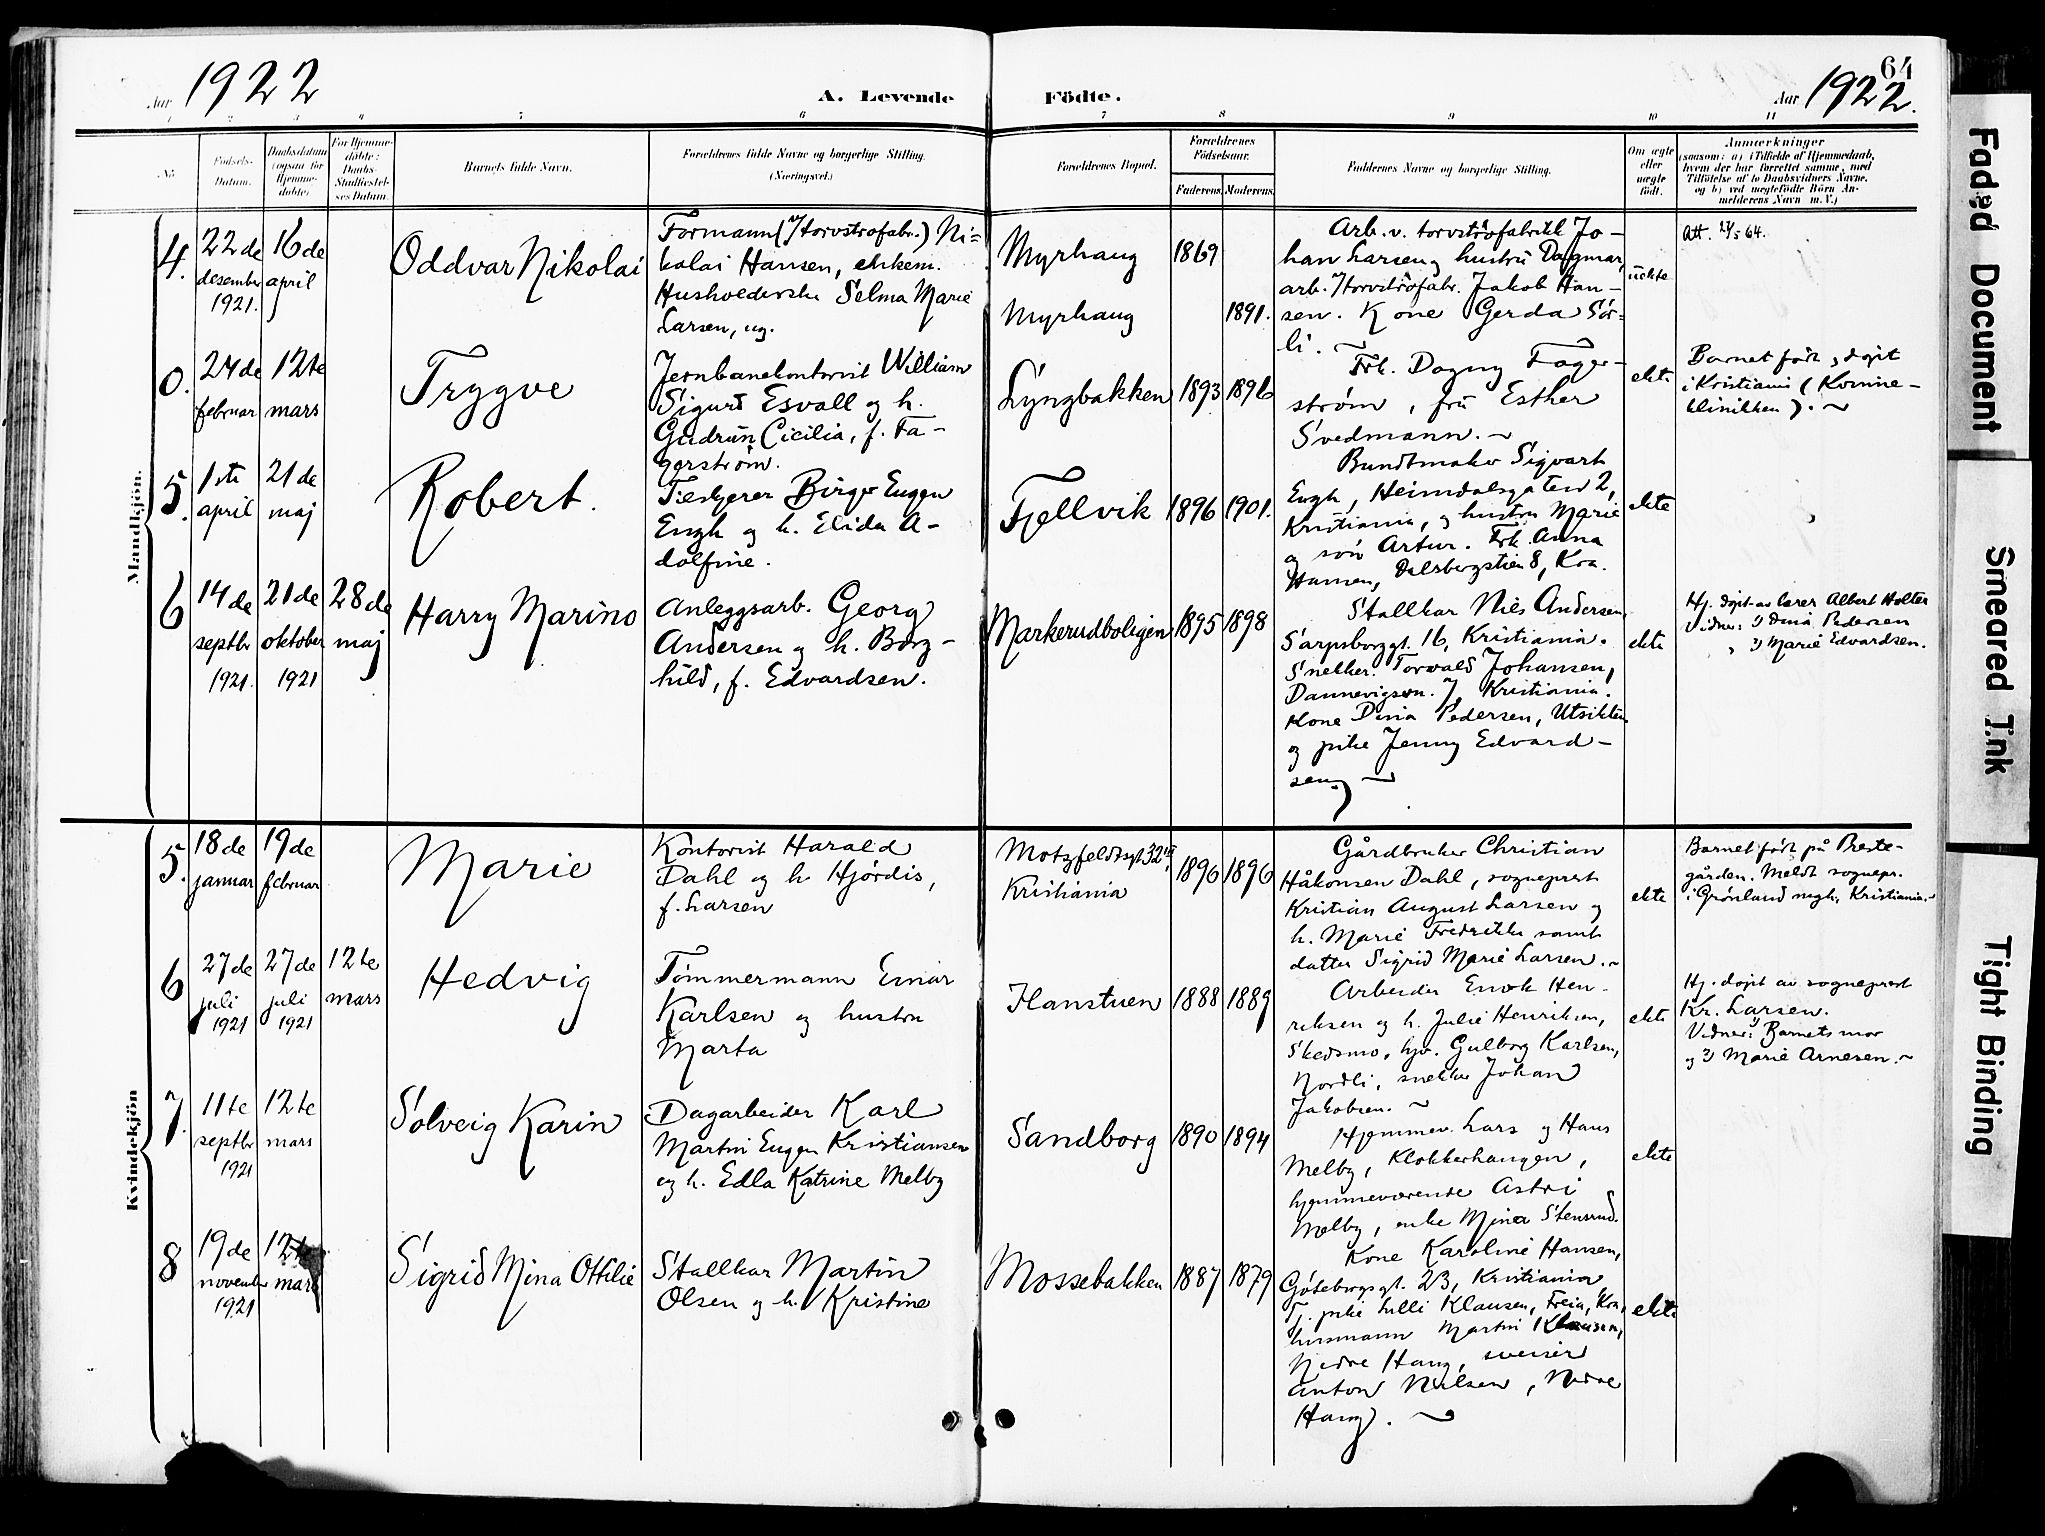 Aar 1922
A. Levende
Födte.
64
Aar 1922.
No
Födsels-Datum.
Daabsdatum (ogsaa for Hjemmedøbte)
For Hjemmedøbte: Daabs-Stadfæstelsens Datum.
Barnets fulde Navn.
Forældrenes fulde Navne og borgerlige Stilling.
(Næringsvei.)
Forældrenes Bopæl.
Forældrenes Fødselsaar.
Faderens. Moderens.
Faddernes Navne og borgerlige Stilling.
Om ægte eller uægte født.
Anmærkninger
(saasom: a) i Tilfælde af Hjemmedaab,
hvem der har forrettet samme, med
Tilføielse af to Daabsvidners Navne,
og b) ved uægtefødte Börn Anmelderens Navn m. V.)
Mandkjön.
4.
22de desember 1921.
16de april
Oddvar Nikolai
Formann (v/torvstrøfabr.) Ni-
kolai Hansen, enkem.
Husholderske Selma Marie
Larsen, ug.
Myrhaug
Myrhaug
1869
1891.
Arb. v. torvstrøfabrikk Jo-
han Larsen og hustru Dagmar,
arb. v/torvstrøfabr. Jakob Han-
sen. Kone Gerda Sör-
li.
uekte
Att.
0.
24de februar
12te mars
Trygve
Jernbanekontorist William
Sigurd Esvall og h.
Gudrun Cicilia, f. Fa-
gerström.
Lyngbakken
1893
1896
Frk. Dagny Fager-
ström, fru Esther
Svedmann.
ekte
Barnet født og døpt
i Kristiania (Kvinne-
klinikken).
5.
1ste april
21de maj
Robert.
Fieskjerer Birger Eugen
Engh og h. Elida A-
dolfine.
Fjellvik
1896
1901.
Bundtmaker Sigvart
Engh, Heimdalsgaten 2,
Kristiania, og hustru Marie
og sön Artur. Frk. Anna
Hansen, Dalsbergstien 8, Kra.
ekte
6
14de septbr 1921.
21de oktober 1921
28de maj
Harry Marino
Anleggsarb. Georg
Andersen og h. Borg-
hild, f. Edvardsen.
Markerudboligen
1895
1898
Stallkar Nils Andersen,
Sarpsborggt. 16, Kristiania.
Snekker Torvald Johansen,
Dannevigsvn. 7, Kristiania.
Kone Dina Pedersen, Utsikten
og pike Jenny Edvard-
sen
ekte
Hj. døpt av lærer Albert Holter
Vidner: 1) Dina Pedersen
2) Marie Edvardsen.
Kvindekjön
5.
18de januar
19de februar
Marie
Kontorist Harald
Dahl og h. Hjördis,
f. Larsen
Motzfeldtsgt 32
Kristiania
1896
1896
Gårdbruker Christian
Håkonsen Dahl, sogneprest
Kristian August Larsen og
h. Marie Fredrikke samt
datter Sigrid Marie Larsen.
ekte
Barnet født på Preste-
gården. Meldt sognepr.
i Grønland mgh., Kristiania.
6
27de juli 1921
27de juli 1921
12te mars
Hedvig
Tömmermann Einar
Karlsen og hustru
Marta
Hanstuen
1888
1889
Arbeider Enok Hen-
riksen og h. Julie Henriksen,
Skedsmo, hjv. Gulborg Karlsen,
Nordli, snekker Johan
Jakobsen.
ekte
Hj. døpt av sogneprest
Kr. Larsen.
Vidner: 1) Barnets mor
og 2) Marie Arnesen.
7.
11te septbr 1921
12te mars
Solveig Karin
Dagarbeider Karl
Martin Eugen Kristiansen
og h. Edla Katrine Melby
Sandborg
1890
1894
Hjemmev. Lars og Hans
Melby, Klokkerhaugen,
hjemmeværende Astri
Melby, enke Mina Stensrud.
ekte
8
19de november 1921
12te mars
Sigrid Mina Ottilie
Stallkar Martin
Olsen og h. Kristine
Mossebakken
1887
1879
Kone Karoline Hansen,
Göteborggt. 23, Kristiania
T. pike Lulli Klausen, Freia, Kra,
husmann Martin Klausen,
Nedre Haug, sveiser
Anton Nilsen, Nedre
Haug.
ekte
Faded Document
Smeared Ink
Tight Binding